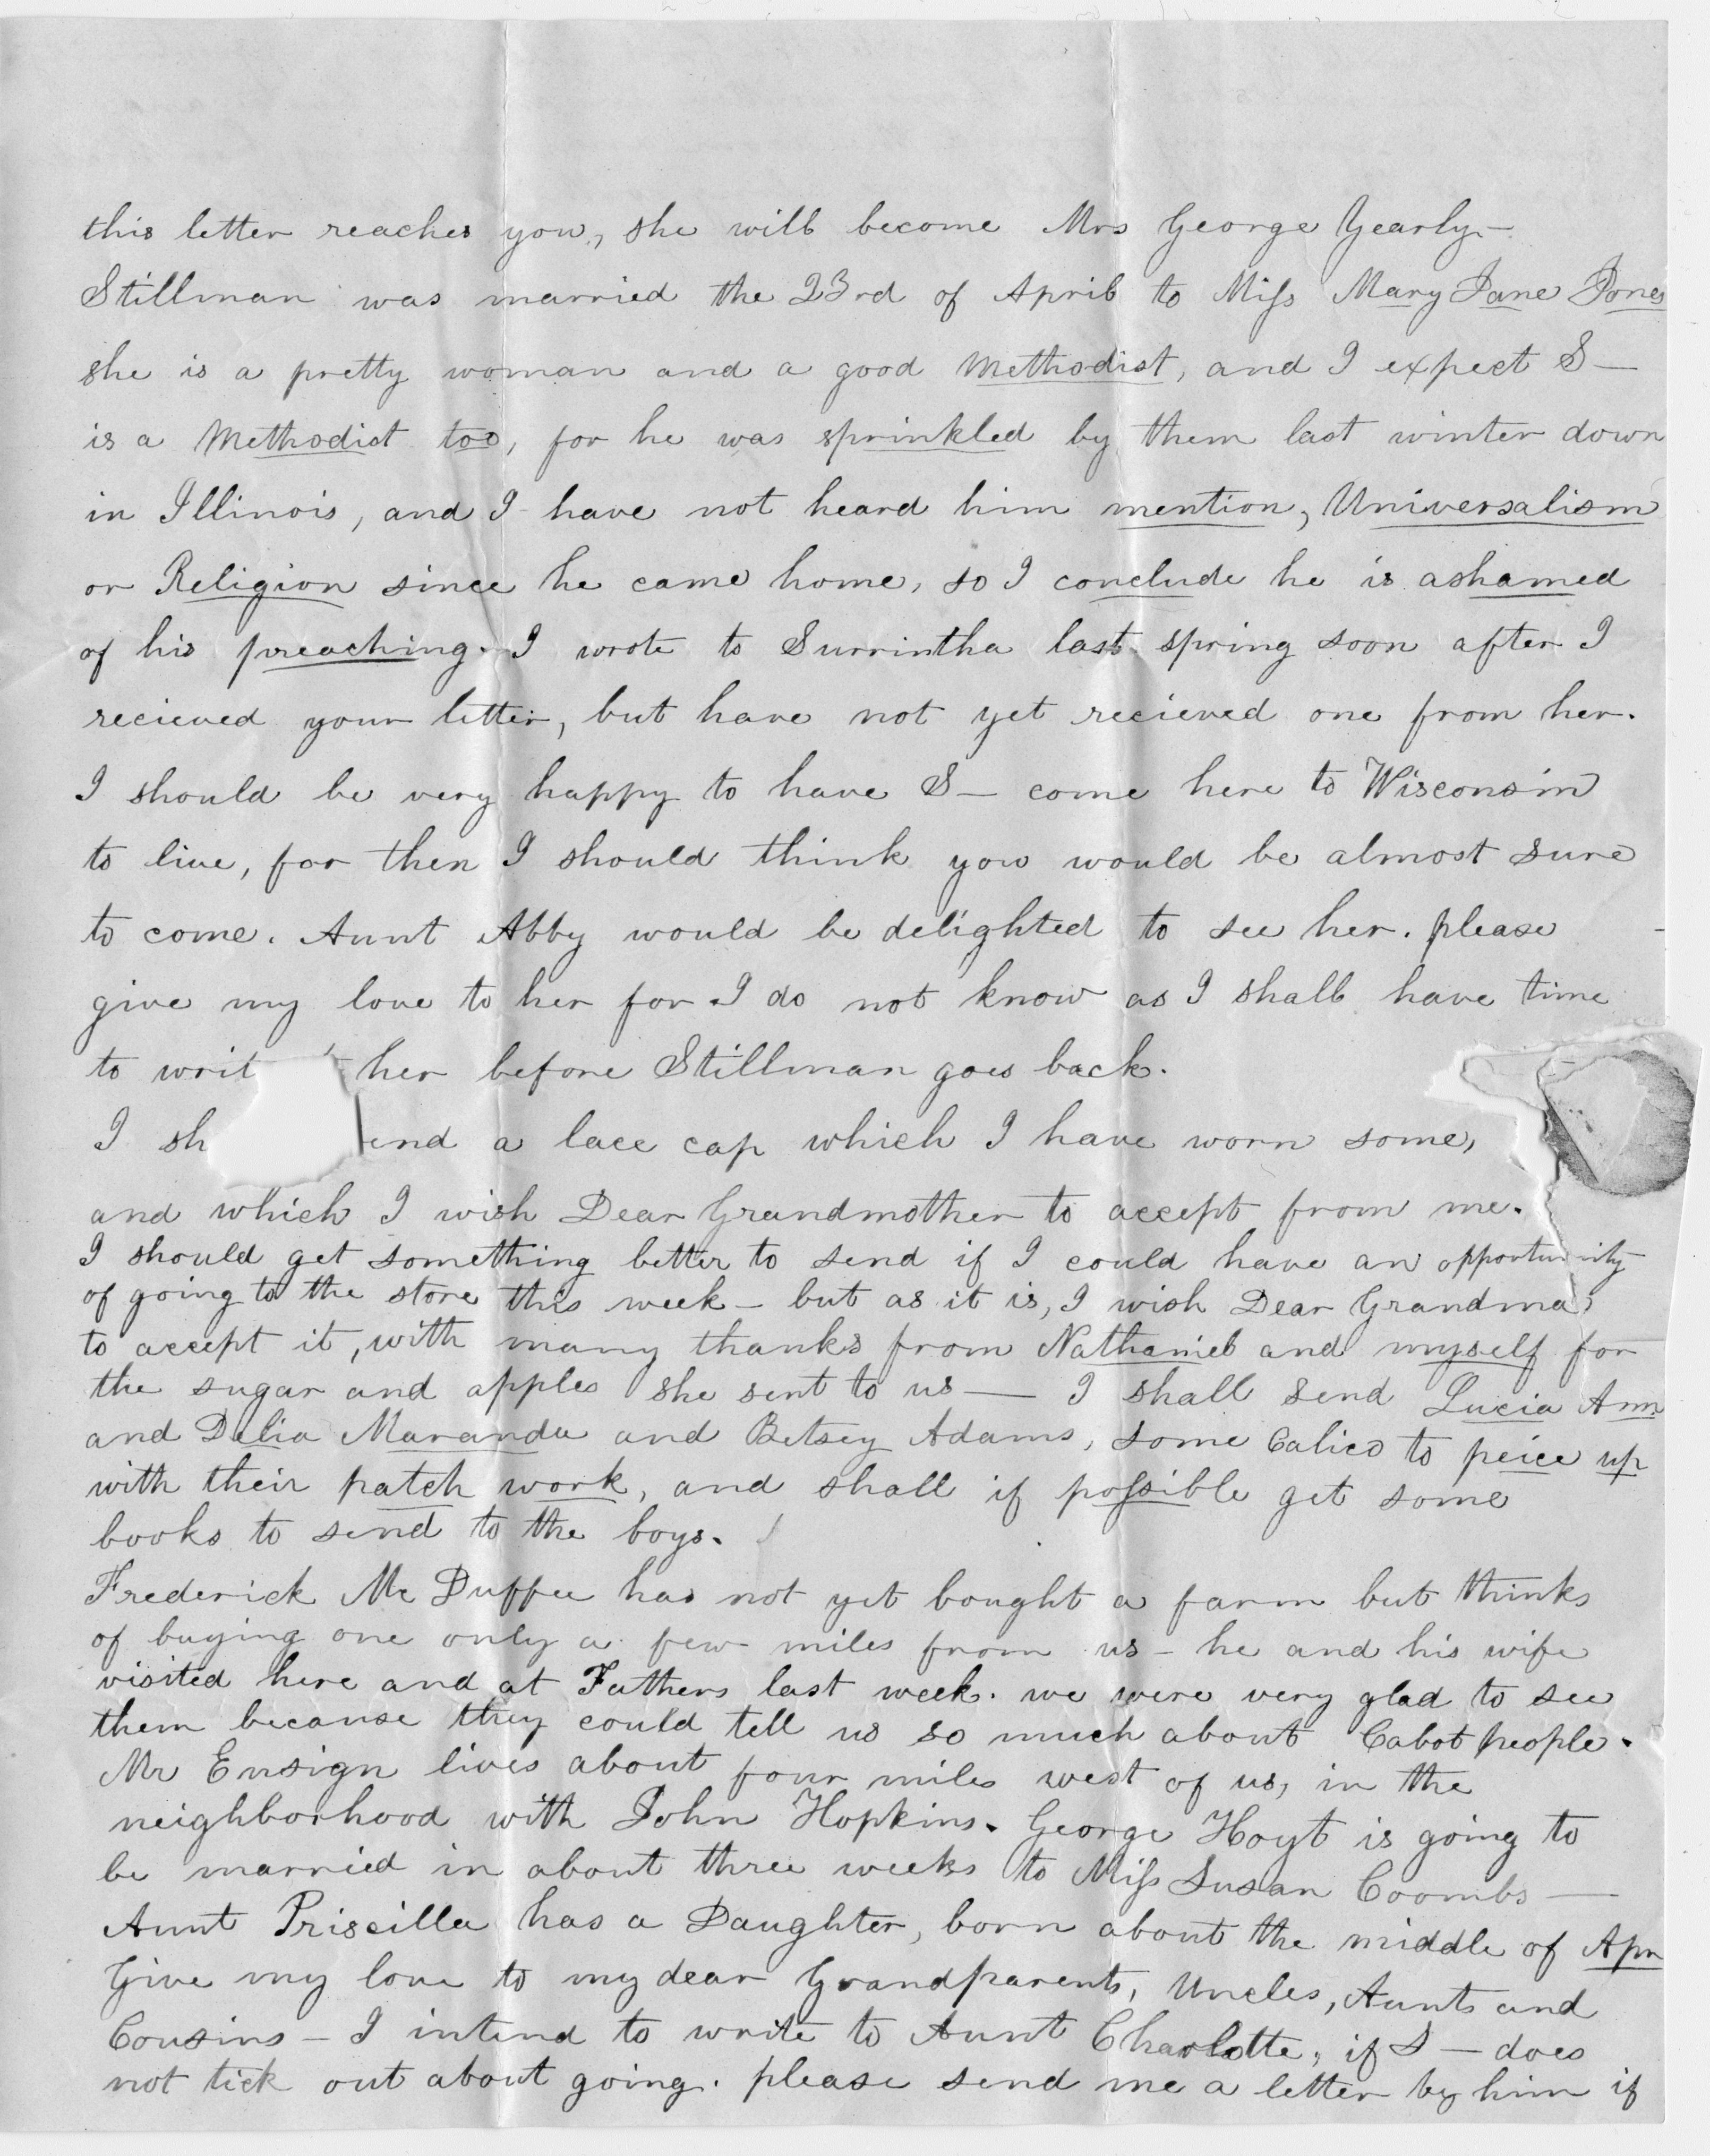 this letter reaches you, she will become Mrs George Yearly—
Stillman was married the 23rd of April to Miss Mary Jane Jones
she is a pretty woman and a good Methodist, and I expect S—
is a Methodist too, for he was sprinkled by them last winter down
in Illinois, and I have not heard him mention, Universalism
or Religion since he came home, so I conclude he is ashamed
of his preaching. I wrote to Surrintha last spring soon after I
recieved your letter, but have not yet recieved one from her.
I should be very happy to have S— come here to Wisconsin
to live, for then I should think you would be almost sure
to come. Aunt Abby would be delighted to see her. please
give my love to her for I do not know as I shall have time
to writ her before Stillman goes back.
I sh end a lace cap which I have worn some,
and which I wish Dear Grandmother to accept from me.
I should get something better to send if I could have an opportunity
of going to the store this week — but as it is, I wish Dear Grandma
to accept it, with many thanks from Nathaniel and myself for
the sugar and apples she sent to us — I shall send Lucia Ann
and Delia Maranda and Betsey Adams, some Calico to peice up
with their patch work, and shall if possible get some
books to send to the boys.
Frederick Mc Duffee has not yet bought a farm but thinks
of buying one only a few miles from us — he and his wife
visited here and at Fathers last week. we were very glad to see
them because they could tell us so much about Cabot people.
Mr Ensign lives about four miles west of us, in the
neighborhood with John Hopkins. George Hoyt is going to
be married in about three weeks to Miss Susan Coombs —
Aunt Priscilla has a Daughter, born about the middle of Apr
Give my love to my dear Grandparents, Uncles, Aunts and
Cousins — I intend to write to Aunt Charlotte, if S — does
not tick out about going. please send me a letter by him if